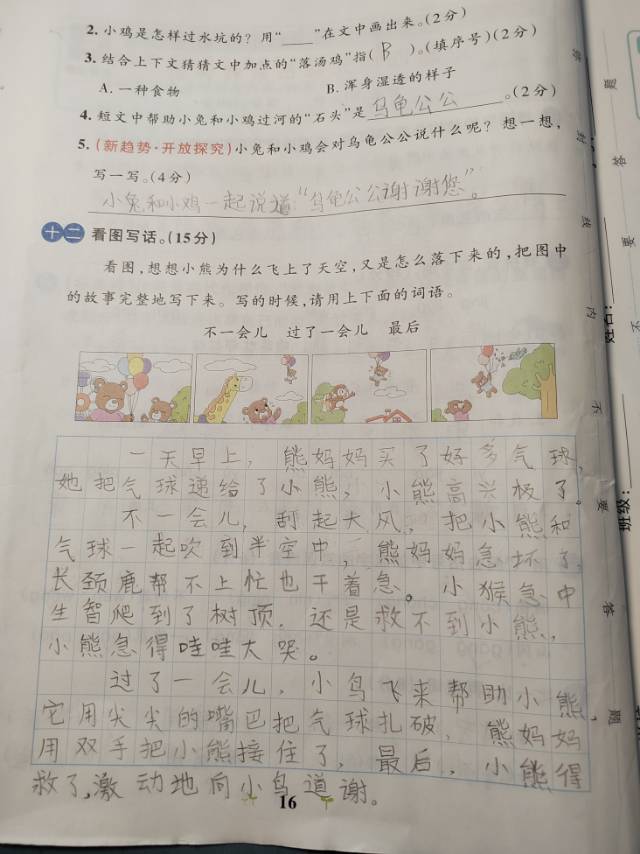 2. 小鸡是怎样过水坑的？用“____”在文中画出来。(2分)
3. 结合上下文猜猜文中加点的“落汤鸡”指( B )。(填序号)(2分)
A. 一种食物 B. 浑身湿透的样子
4. 短文中帮助小兔和小鸡过河的“石头”是 乌龟公公 。(2分)
5. (新趋势·开放探究)小兔和小鸡会对乌龟公公说什么呢？想一想，
写一写。(4分)
小兔和小鸡一起说道：“乌龟公公谢谢您”。
十二 看图写话。(15分)
看图，想想小熊为什么飞上了天空，又是怎么落下来的，把图中
的故事完整地写下来。写的时候，请用上下面的词语。
不一会儿 过了一会儿 最后
一天早上，熊妈妈买了好多气球，
她把气球递给了小熊，小熊高兴极了。
不一会儿，刮起大风，把小熊和
气球一起吹到半空中，熊妈妈急坏了，
长颈鹿帮不上忙也干着急。小猴急中
生智爬到了树顶，还是救不到小熊，
小熊急得哇哇大哭。
过了一会儿，小鸟飞来帮助小熊，
它用尖尖的嘴巴把气球扎破，熊妈妈
用双手把小熊接住了，最后，小熊得
救了，激动地向小鸟道谢。
16
题
答
要
不
线
内
不
要
答
题
姓名：
班级：